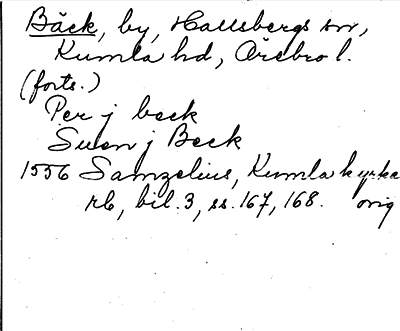 Bäck, by, Hallsbergs sn,
Kumla hd, Örebro l.
(forts.)
Per j beck
Suen j Beck
1556 Samzelius, Kumla kyrkas
rb, bil. 3, ss. 167, 168. orig